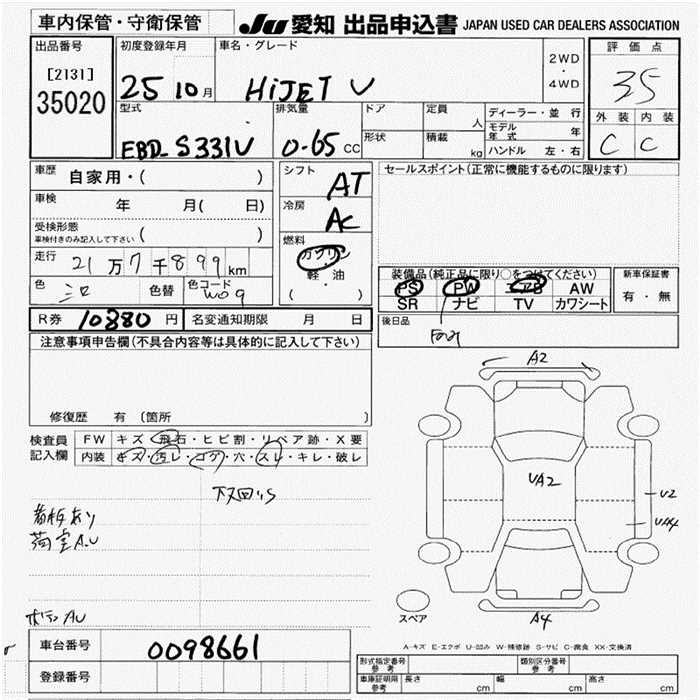 車内保管・守衛保管
JU 愛知 出品申込書 JAPAN USED CAR DEALERS ASSOCIATION
出品番号
[2131]
35020
初度登録年月
25 10月
車名・グレード
HiJET V
2WD
・
4WD
評価点
35
外装 内装
C C
型式
EBD-S331V
排気量
0.65 CC
ドア
形状
定員
人
積載
kg
ディーラー・並行
モデル年式 年
ハンドル 左・右
車歴
自家用・( )
車検
年 月( 日)
受検形態
車検付きのみ記入して下さい ( )
走行
21万7千899km
色
シロ
色替
色コード
W09
シフト
AT
冷房
AC
燃料
ガソリン
・
軽・油
( )
セールスポイント(正常に機能するものに限ります)
装備品(純正品に限り○をつけてください)
PS PW エアB AW
SR ナビ TV カワシート
新車保証書
有・無
R券 10880 円
名変通知期限 月 日
後日品
注意事項申告欄(不具合内容等は具体的に記入して下さい)
修復歴 有 〔箇所 〕
検査員記入欄
FW キズ・飛石・ヒビ割・リペア跡・X要
内装 キズ・汚レ・コゲ・穴・スレ・キレ・破レ
下回りS
看板あり
荷室A.U
A2
UA2
U2
UA4
A4
スペア
A-キズ E-エクボ U-凹み W-補修跡 S-サビ C-腐食 XX-交換済
車台番号
0098661
登録番号
形式指定番号
参考
類別区分番号
参考
車庫証明用
参考
長さ cm
幅 cm
高さ cm